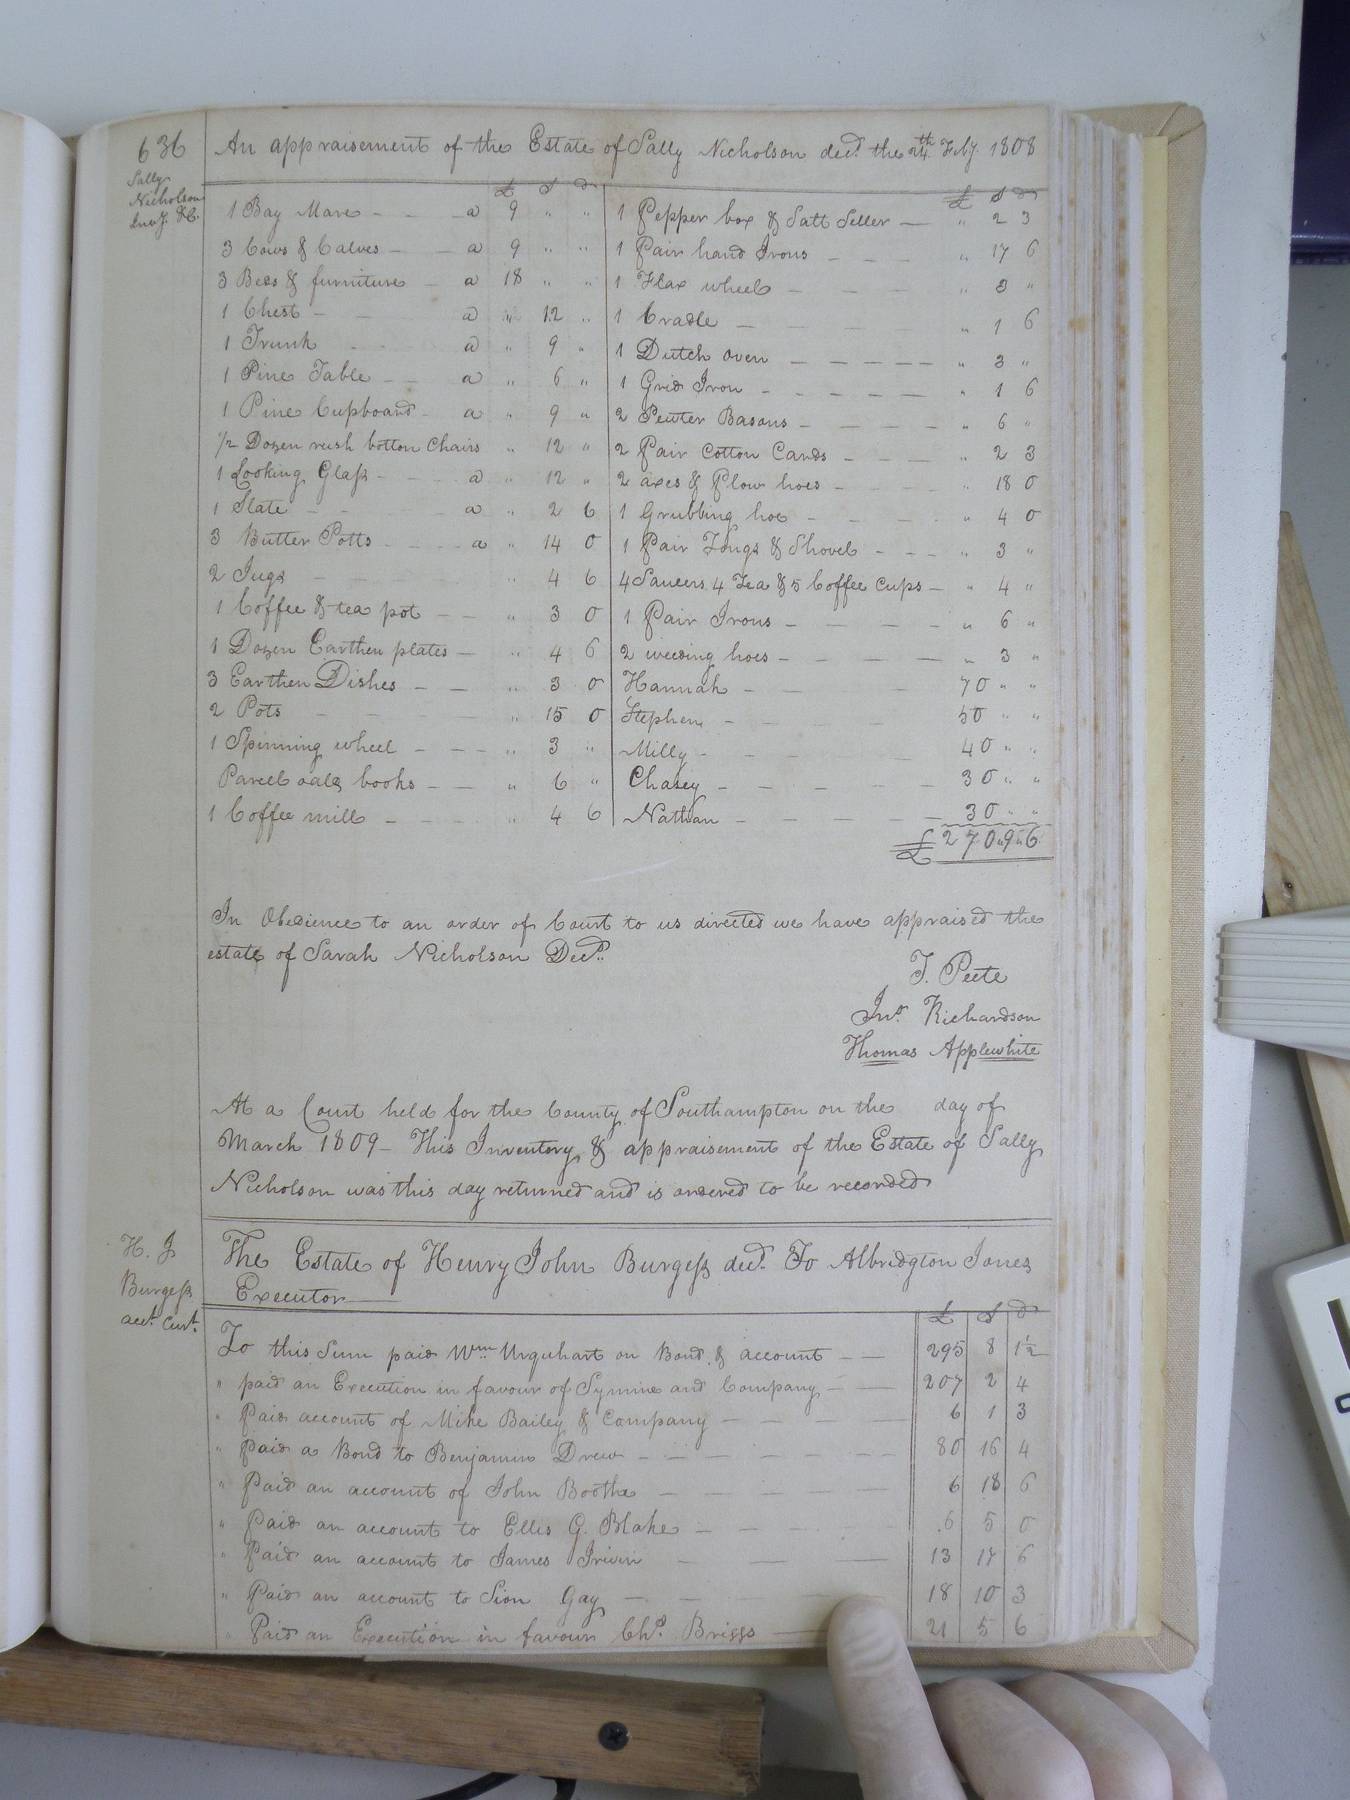 636
An appraisement of the Estate of Sally Nicholson decd. the 24th Feby. 1808
Sally
Nicholson
Invy. &c.
£ S d
1 Bay Mare - - - a 9 " "
3 Cows & Calves - - a 9 " "
3 Beds & furniture - a 18 " "
1 Chest - a " 12 "
1 Trunk - - a " 9 "
1 Pine Table - - a " 6 "
1 Pine Cupboard - a " 9 "
1/2 Dozen rush bottom Chairs " 12 "
1 Looking Glass - - a " 12 "
1 Slate - - a " 2 6
3 Butter Potts - - - a " 14 0
2 Jugs - " 4 6
1 Coffee & tea pot - - " 3 0
1 Dozen Earthen plates - " 4 6
3 Earthen Dishes - - " 3 0
2 Pots - - - " 15 0
1 Spinning wheel - - - " 3 "
Parcel old books - - " 6 "
1 Coffee mill - - - " 4 6
£ S d
1 Pepper box & Salt Seller - " 2 3
1 Pair hand Irons - - - " 17 6
1 Flax wheel - - - " 3 "
1 Cradle - - - - " 1 6
1 Dutch oven - - - - - " 3 "
1 Grid Iron - - - - - " 1 6
2 Pewter Basons - - - - " 6 "
2 Pair Cotton Cards - - - " 2 3
2 axes & Plow hoes - - - - " 18 0
1 Grubbing hoe - - - - " 4 0
1 Pair Tongs & Shovel - - - " 3 "
4 Saucers 4 Tea & 5 Coffee Cups - " 4 "
1 Pair Irons - - - - " 6 "
2 weeding hoes - - - - " 3 "
Hannah - - - 70 " "
Stephen - - - 50 " "
Milly - - - - 40 " "
Chasey - - - - - 30 " "
Nathan - - - - - 30 " "
£ 270 " 9 " 6
In Obedience to an order of Court to us directed we have appraised the
estate of Sarah Nicholson Decd.
T. Peete
Jno. Richardson
Thomas Applewhite
At a Court held for the County of Southampton on the day of
March 1809 - This Inventory & appraisement of the Estate of Sally
Nicholson was this day returned and is ordered to be recorded
H. J
Burgess
acct. Curt.
The Estate of Henry John Burgess decd. To Albridgton Jones
Executor
£ S d
To this Sum paid Wm. Urquhart on Bond & account - - 295 8 1½
" paid an Execution in favour of Symine and Company - - 207 2 4
" Paid account of Mike Bailey & Company - - - - 6 1 3
" Paid a Bond to Benjamin Drew - - - - - - 80 16 4
" Paid an account of John Boothe - - - - - 6 18 6
" Paid an account to Ellis G. Blake - - - - 6 5 0
" Paid an account to James Irwin - - - 13 17 6
" Paid an account to Sion Gay - - - 18 10 3
" Paid an Execution in favour Chs. Briggs - 21 5 6